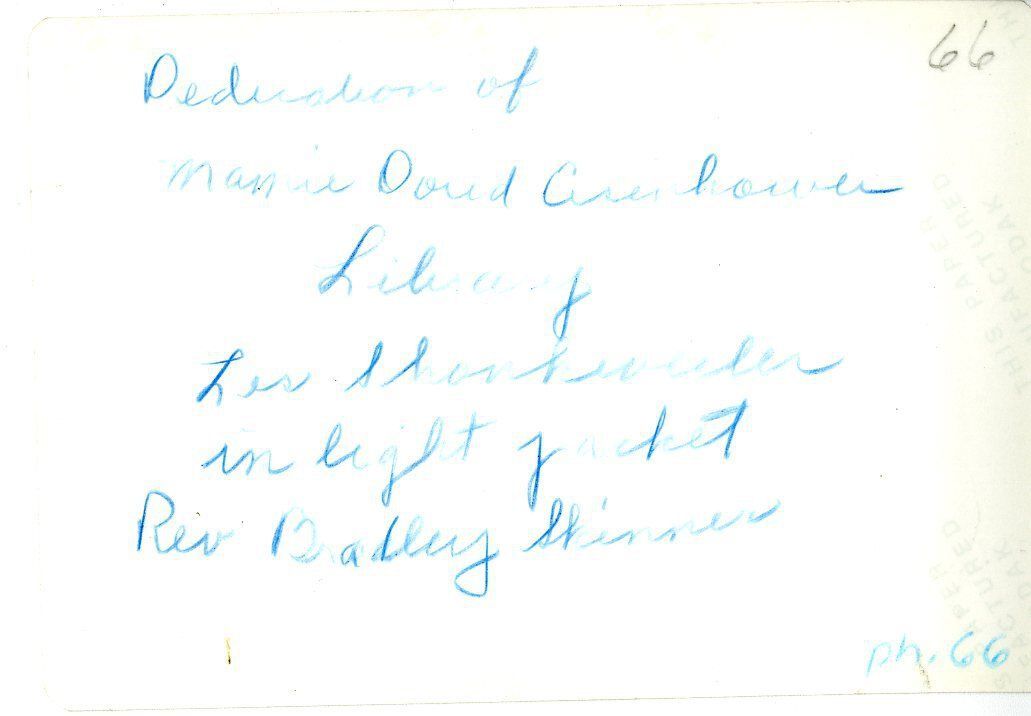 66
Dedication of
Mamie Doud Eisenhower
Library
Les Shonkwiler
in light jacket
Rev Bradley Skinner
ph. 66
THIS PAPER
MANUFACTURED
KODAK